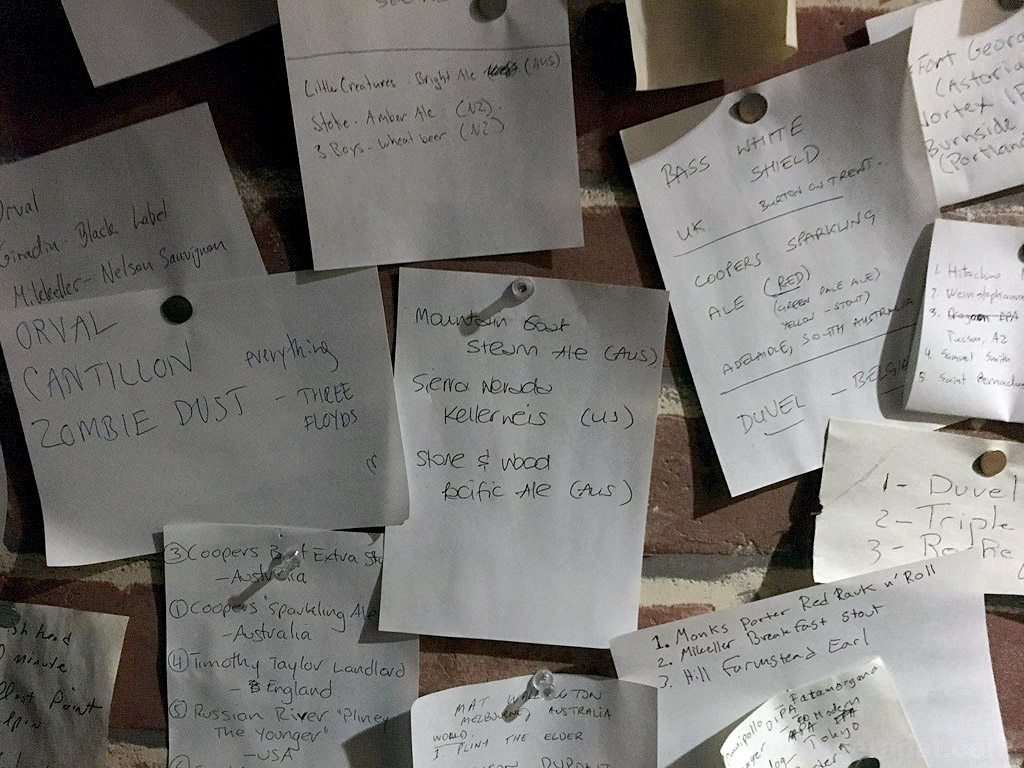 Little Creatures - Bright Ale (AUS)
Stoke - Amber Ale (NZ)
3 Boys - Wheat beer (NZ)
Orval
Giradin - Black Label
Mikkeller - Nelson Sauvignon
ORVAL
CANTILLON everything
ZOMBIE DUST - THREE
FLOYDS
Mountain Goat
Steam Ale (Aus)
Sierra Nevada
Kellerweis (US)
Stone & Wood
Pacific Ale (Aus)
BASS WHITE
SHIELD
BURTON ON TRENT.
UK.
COOPERS SPARKLING
ALE (RED)
(GREEN PALE ALE)
YELLOW - STOUT)
ADELAIDE, SOUTH AUSTRALIA
DUVEL - BELGIU
Fort Georg
(Astoria
Vortex IP
Burnside
(Portland
1. Hitachino
2. Weinstephaner
3. Dragoon IPA
Tucson, AZ
4. Samuel Smith
5. Saint Bernadus
1 - Duvel
2 - Triple
3 -
③ Coopers Best Extra St
- Australia
① Coopers "Sparkling Ale
- Australia
④ Timothy Taylor Landlord
- England
⑤ Russian River "Pliney
The Younger"
- USA
1. Monks Porter Red Rauk n' Roll
2. Mikeller Breakfast Stout
3. Hill Farmstead Earl
MAT
MELBOURNE, AUSTRALIA
WORLD:
1 PLINY THE ELDER
DUPONT
Fatamorgana
Omnipollo
Modern
Tokyo
sh head
minute
Point